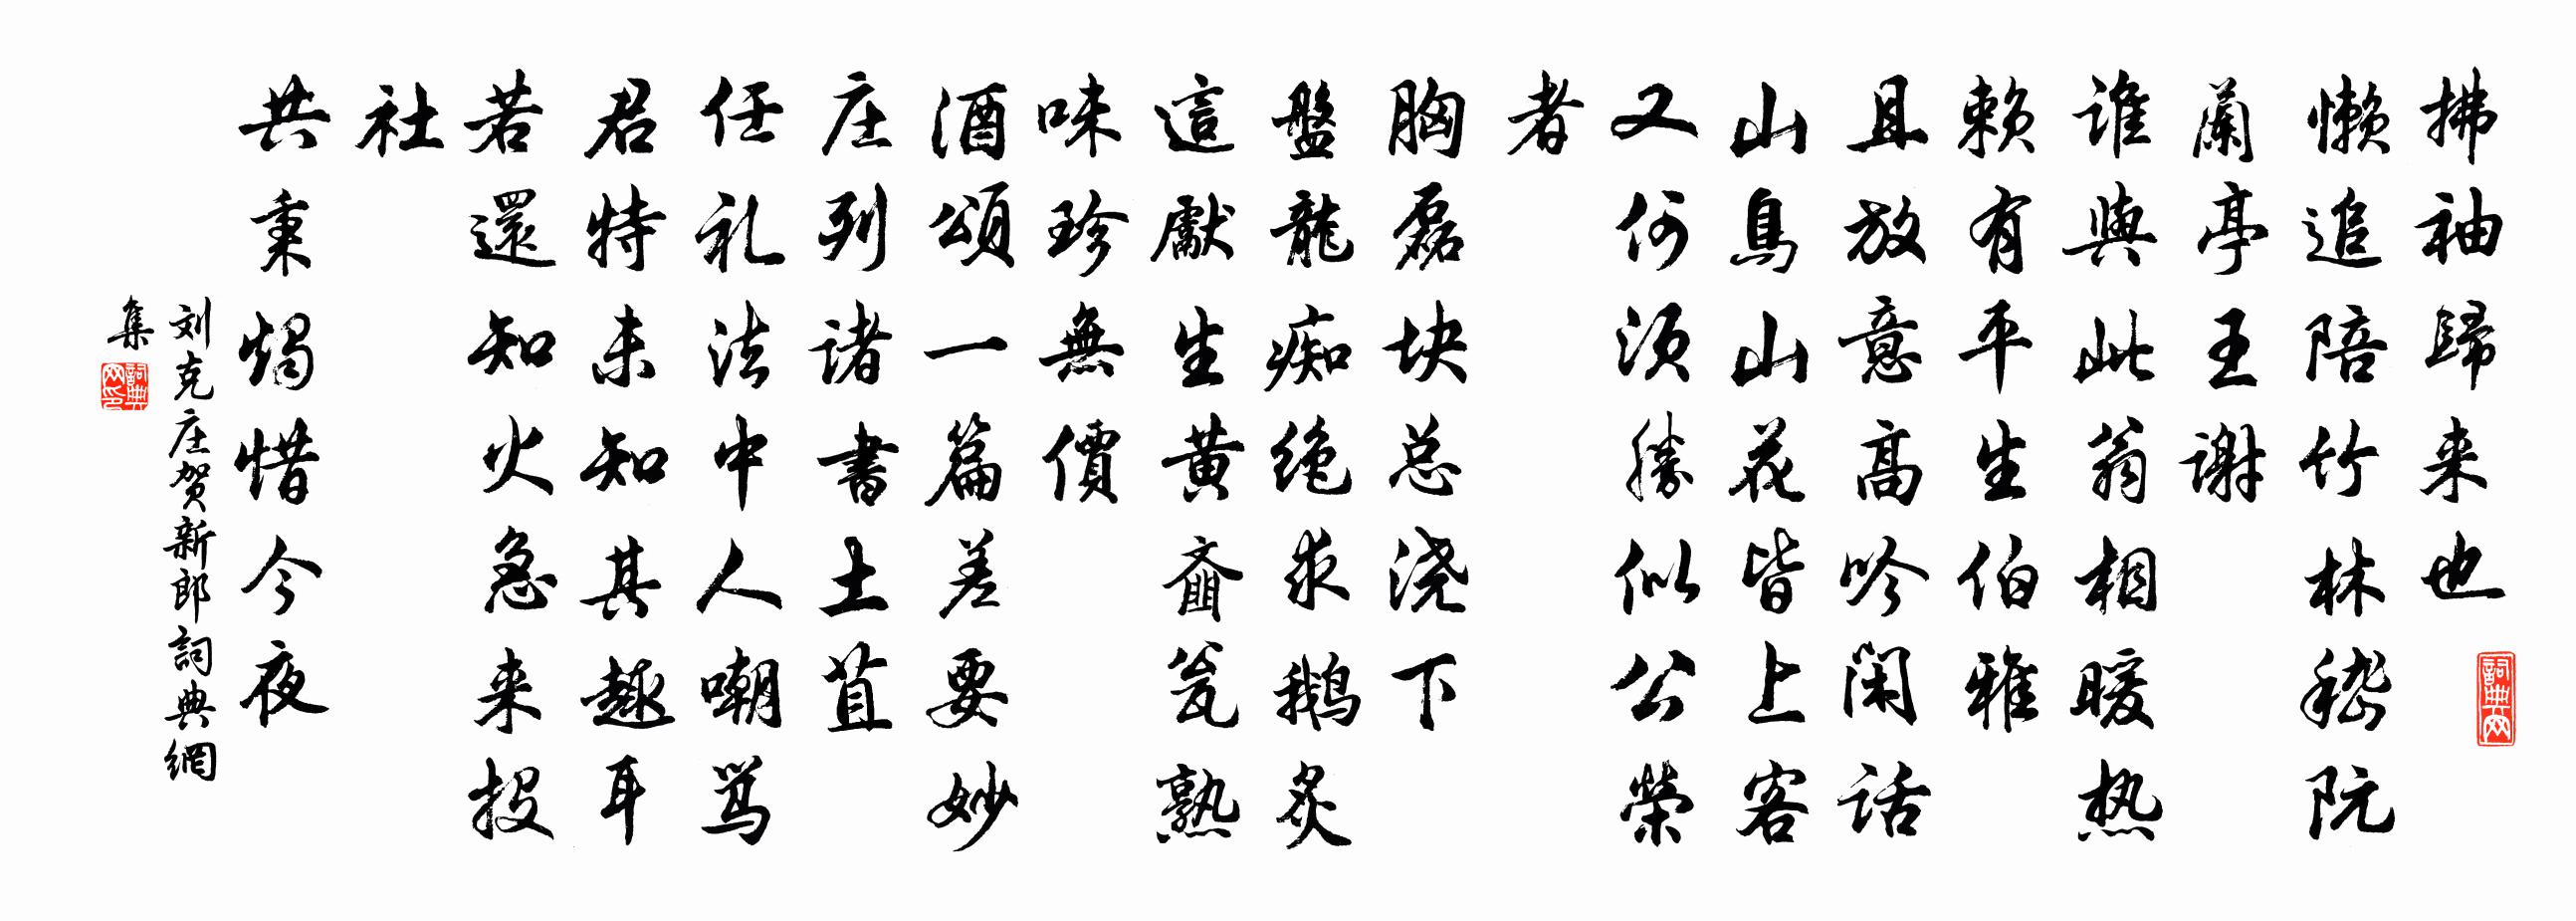 拂袖歸来也
懒追陪竹林嵇阮
蘭亭王谢
谁與此翁相暖热
赖有平生伯雅
且放意高吟闲话
山鳥山花皆上客
又何须勝似公榮
者
胸磊块总浇下
盤龍痴绝求鹅炙
這獻生黄齑瓮熟
味珍無價
酒頌一篇差要妙
庄列诸書土苴
任礼法中人嘲骂
君特未知其趣耳
若還知火急来投
社
共秉燭惜今夜
刘克庄贺新郎詞典網
集
詞典网印
詞典网